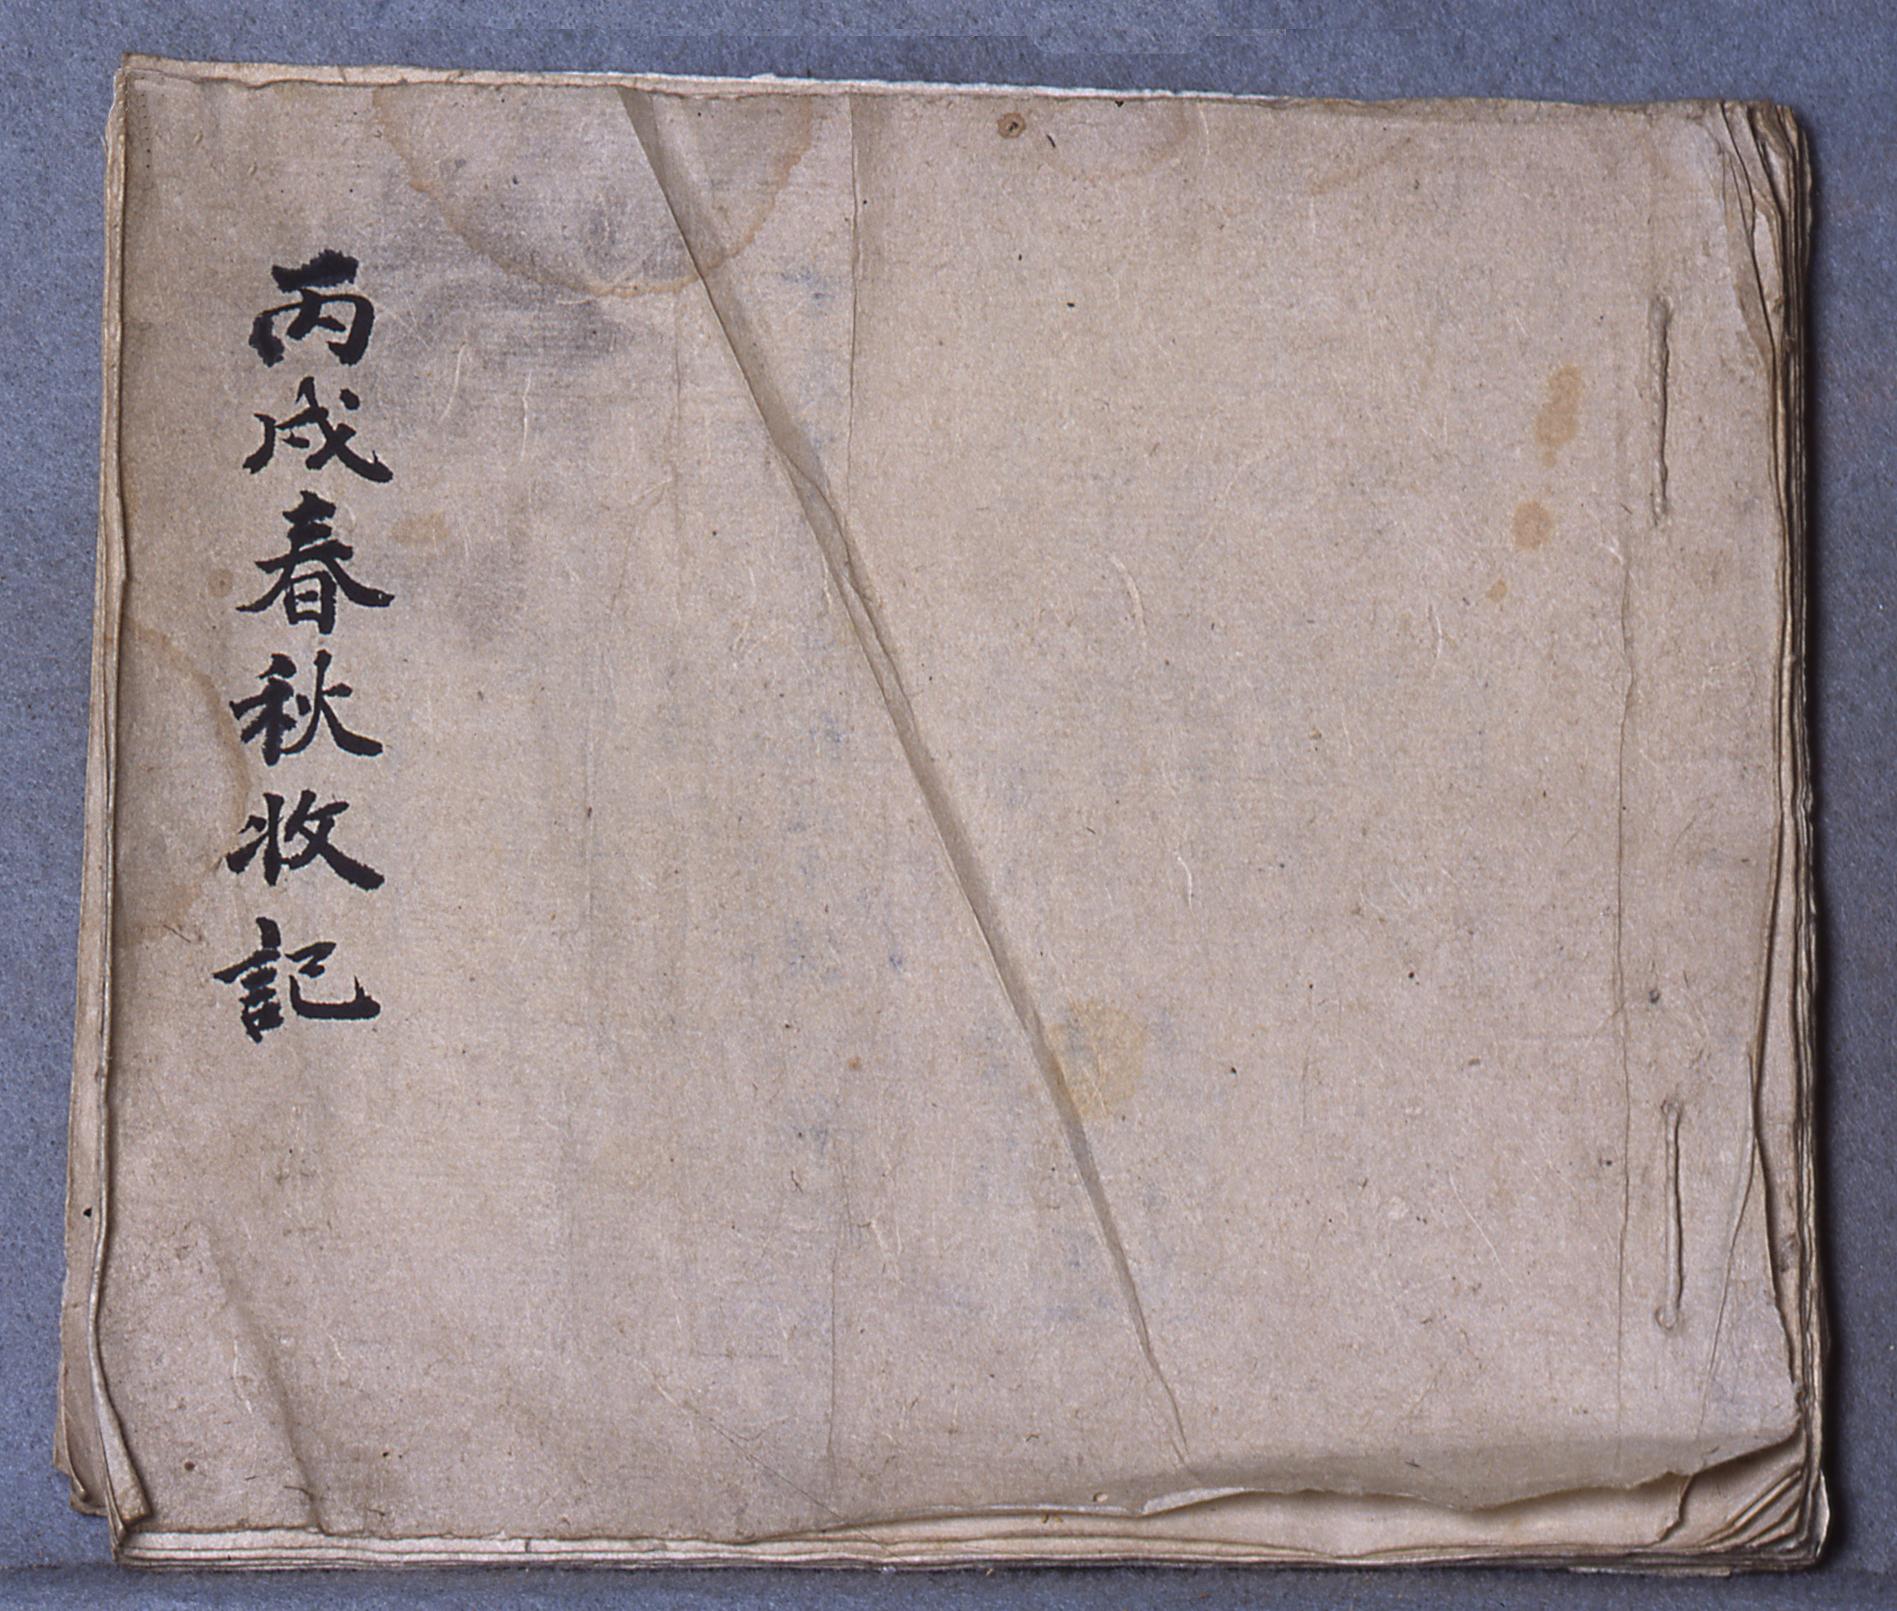 丙戌春秋收記